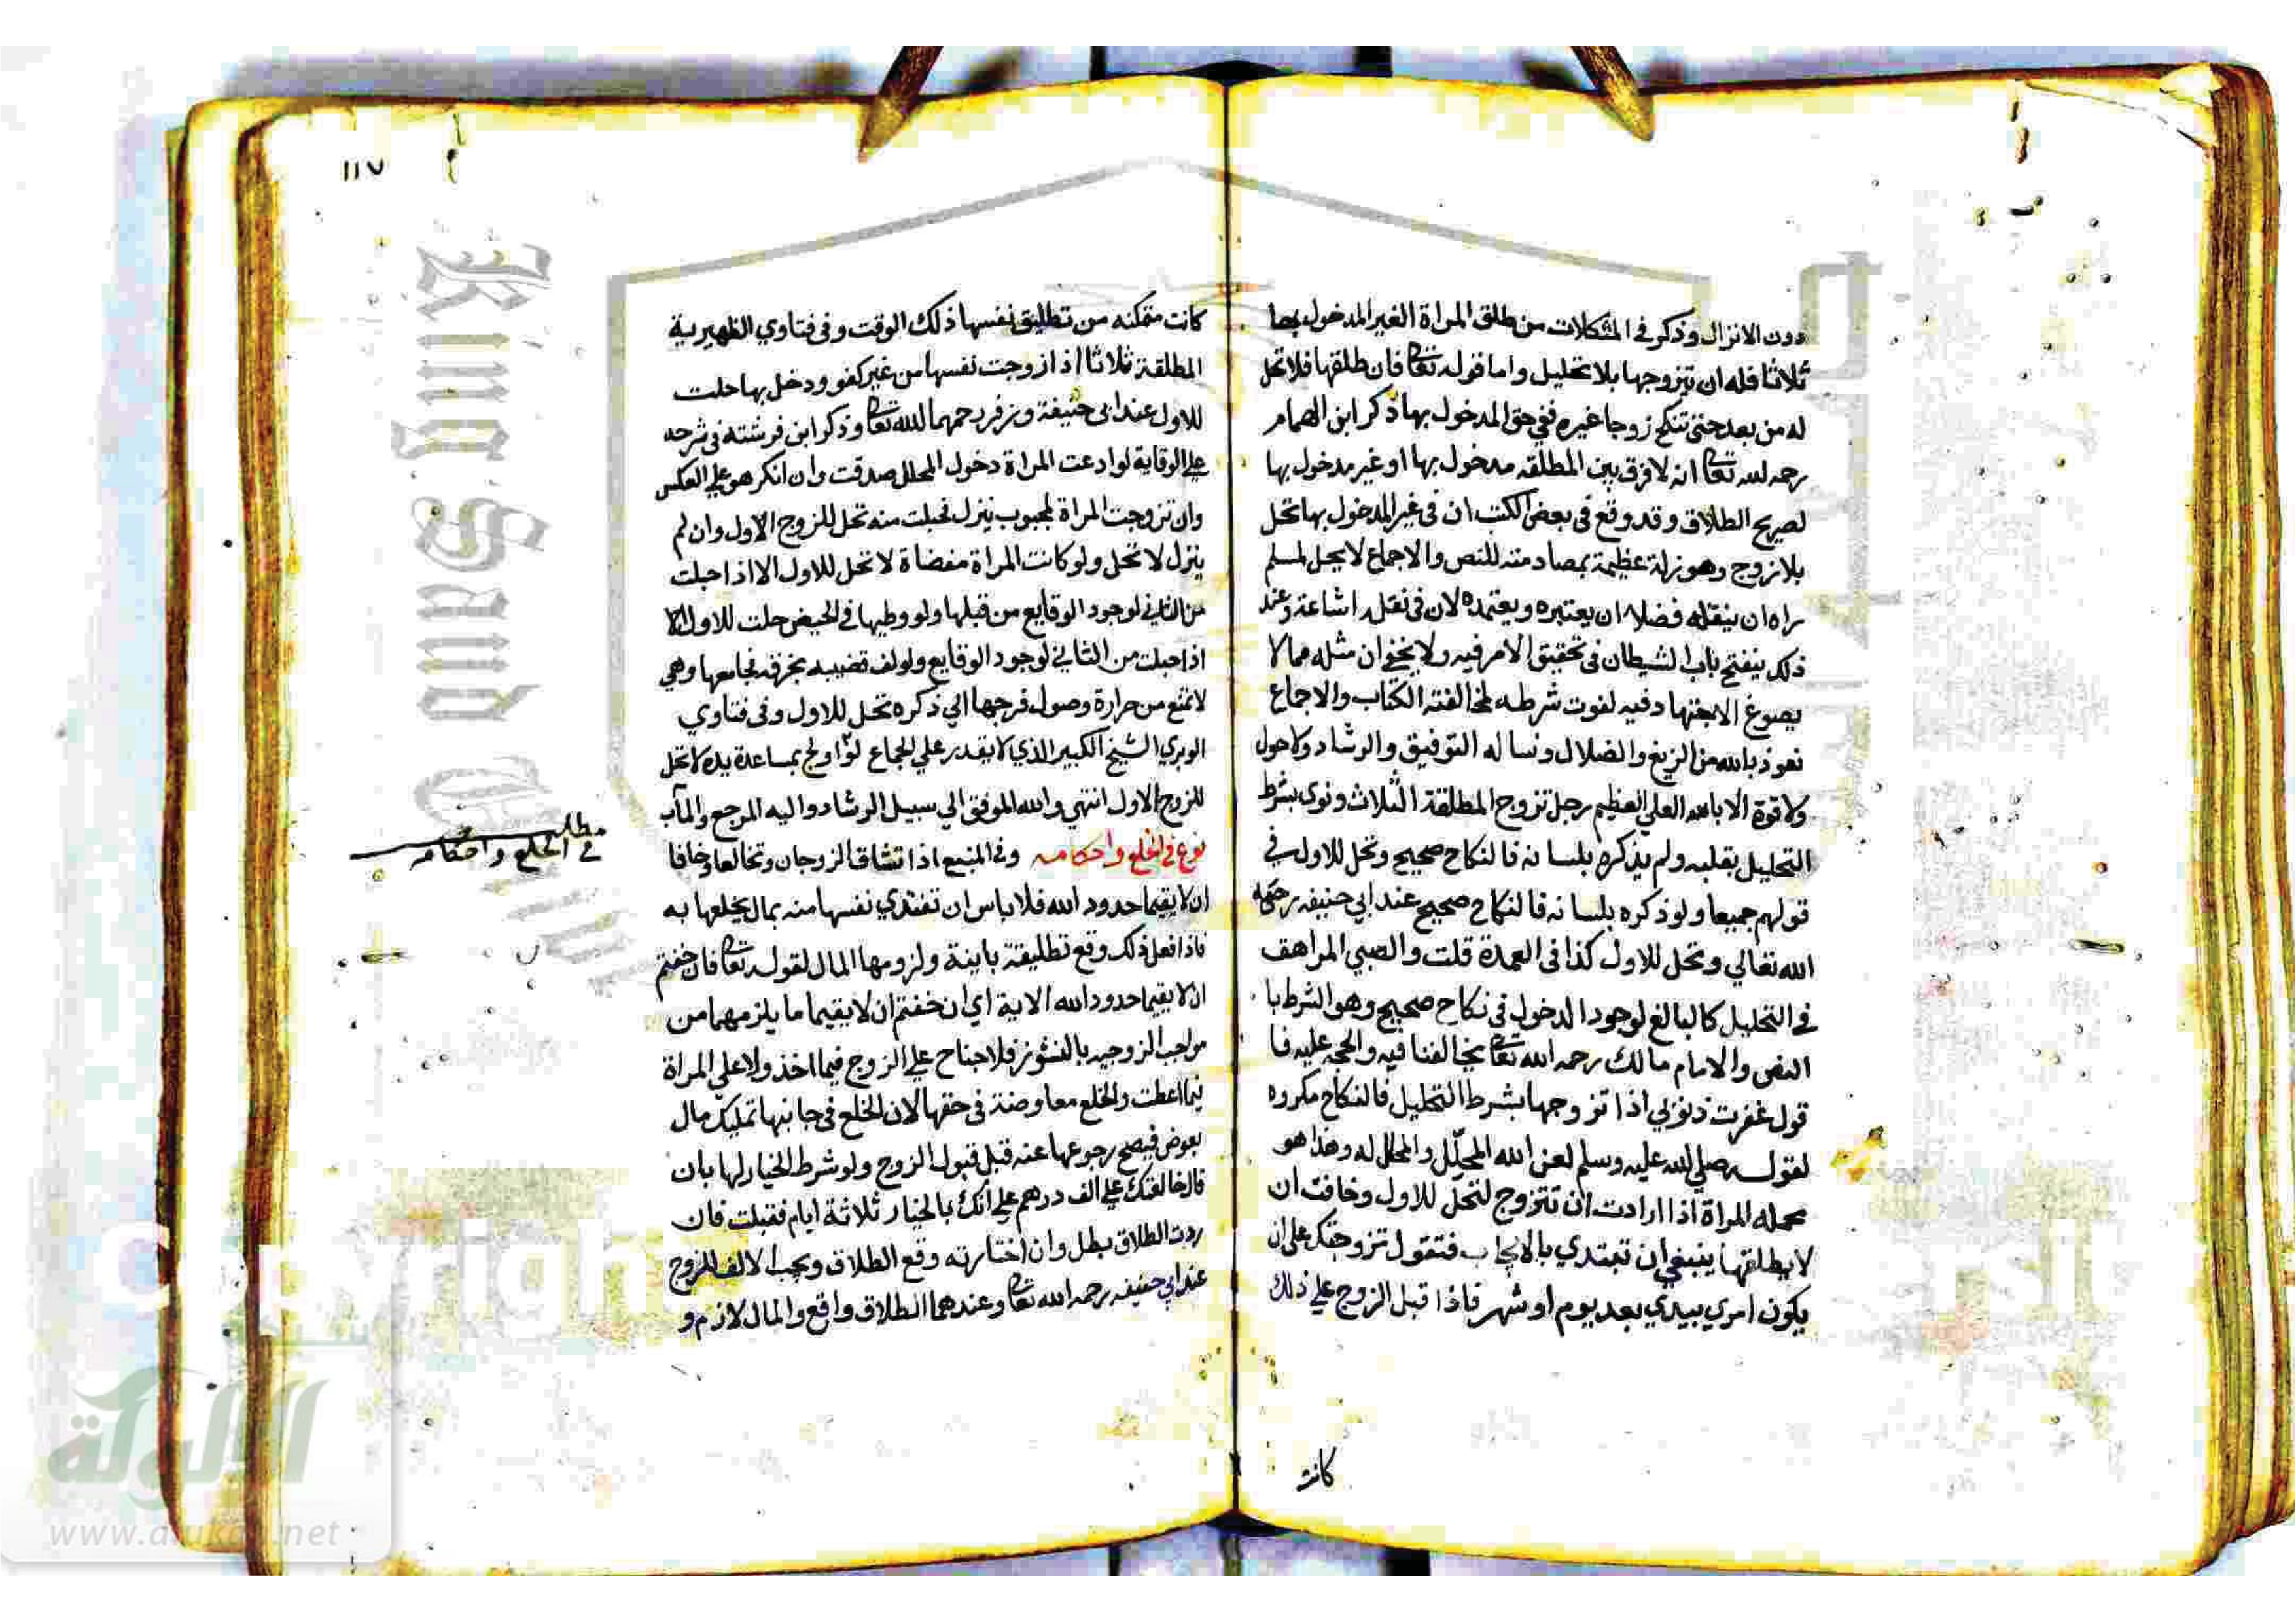 دون الانزال وذكر في المشكلات من طلق المراة الغير المدخول بها
ثلاثا فله ان يتزوجها بلا تحليل واما قوله تعا فان طلقها فلا تحل
له من بعد حتى تنكح زوجا غيره ففي حق المدخول بها ذكر ابن الهمام
رحمه لله تعا انه لا فرق بين المطلقه مدخول بها او غير مدخول بها
لصريح الطلاق وقد وقع في بعض الكتب ان في غير المدخول بها تحل
بلا زوج وهو زلة عظيمة بمصادمته للنص والاجماع لا يحل لمسلم
راه ان ينقله فضلا ان يعتبره ويعتمده لان في نقله اشاعة وعند
ذلك ينفتح باب الشيطان في تحقيق الامر فيه ولا يخفي ان مثله مما لا
يصوغ الاجتهاد فيه لفوت شرطه لمخالفته الكتاب والاجماع
نعوذ بالله من الزيغ والضلال ونساله التوفيق والرشاد ولا حول
ولا قوة الا بالله العلي العظيم رجل تزوج المطلقة الثلاث ونوى بشرط
التحليل بقلبه ولم يذكره بلسانه فالنكاح صحيح وتحل للاول في
قولهم جميعا ولو ذكره بلسانه فالنكاح صحيح عند ابي حنيفه رحمه
الله تعالي وتحل للاول كذا في العمدة قلت والصبي المراهق
في التحليل كالبالغ لوجود الدخول في نكاح صحيح وهو الشرط با
النص والامام مالك رحمه الله تعا يخالفنا فيه والحجه عليه فا
قول غفرت ذنوبي اذا تزوجها بشرط التحليل فالنكاح مكروه
لقوله صلي الله عليه وسلم لعن الله المحلّل والمحلل له وهذا هو
محمله المراة اذا ارادت ان تتزوج لتحل للاول وخافت ان
لا يطلقها ينبغي ان تبتدي بالايجاب فتقول تزوجتك على ان
يكون امري بيدي بعد يوم او شهر فاذا قبل الزوج علي ذلك
كانت
١١٧
كانت متمكنه من تطليق نفسها ذلك الوقت وفي فتاوي الظهيرية
المطلقة ثلاثا اذا زوجت نفسها من غير كفو ودخل بها حلت
للاول عند ابي حنيفة وزفر رحمهما الله تعا وذكر ابن فرشته في شرحه
علي الوقاية لو ادعت المراة دخول المحلل صدقت وان انكر هو علي العكس
وان تزوجت المراة لمجبوب ينزل فحبلت منه تحل للزوج الاول وان لم
ينزل لا تحل ولو كانت المراة مفضاة لا تحل للاول الا اذا حبلت
من الثاني لوجود الوقايع من قبلها ولو وطيها في الحيض حلت للاول الا
اذا حبلت من الثاني لوجود الوقايع ولو لف قضيبه بخرقه فجامعها وهي
لا تمنع من حرارة وصول فرجها الي ذكره تحل للاول وفي فتاوي
الوبري الشيخ الكبير الذي لا يقدر علي الجماع لو اولج بمساعدة يده لا تحل
للزوج الاول انتهي والله الموفق الي سبيل الرشاد واليه المرجع والمآب
نوع في الخلع واحكامه وفي المنبع اذا تشاق الزوجان وتخالعا وخافا
مطلب
في الخلع واحكامه
ان لا يقيما حدود الله فلا باس ان تفتدي نفسها منه بمال يخلعها به
فاذا فعل ذلك وقع تطليقة باينة ولزومها المال لقوله تعا فان خفتم
ان لا يقيما حدود الله الاية اي ان خفتم ان لا يقيما ما يلزمهما من
مواجب الزوجيه بالنشوز فلا جناح علي الزوج فيما اخذ ولا علي المراة
فيما اعطت والخلع معاوضة في حقها لان الخلع في جانبها تمليك مال
بعوض فيصح رجوعها عنه قبل قبول الزوج ولو شرط الخيار لها بان
قال خالعتك علي الف درهم علي انك بالخيار ثلاثة ايام فقبلت فان
ردت الطلاق بطل وان اختارته وقع الطلاق ويجب الالف للزوج
عند ابي حنيفه رحمه الله تعا وعندهما الطلاق واقع والمال لازم و
King Saud
Copyright
الألوكة
www.alukah.net